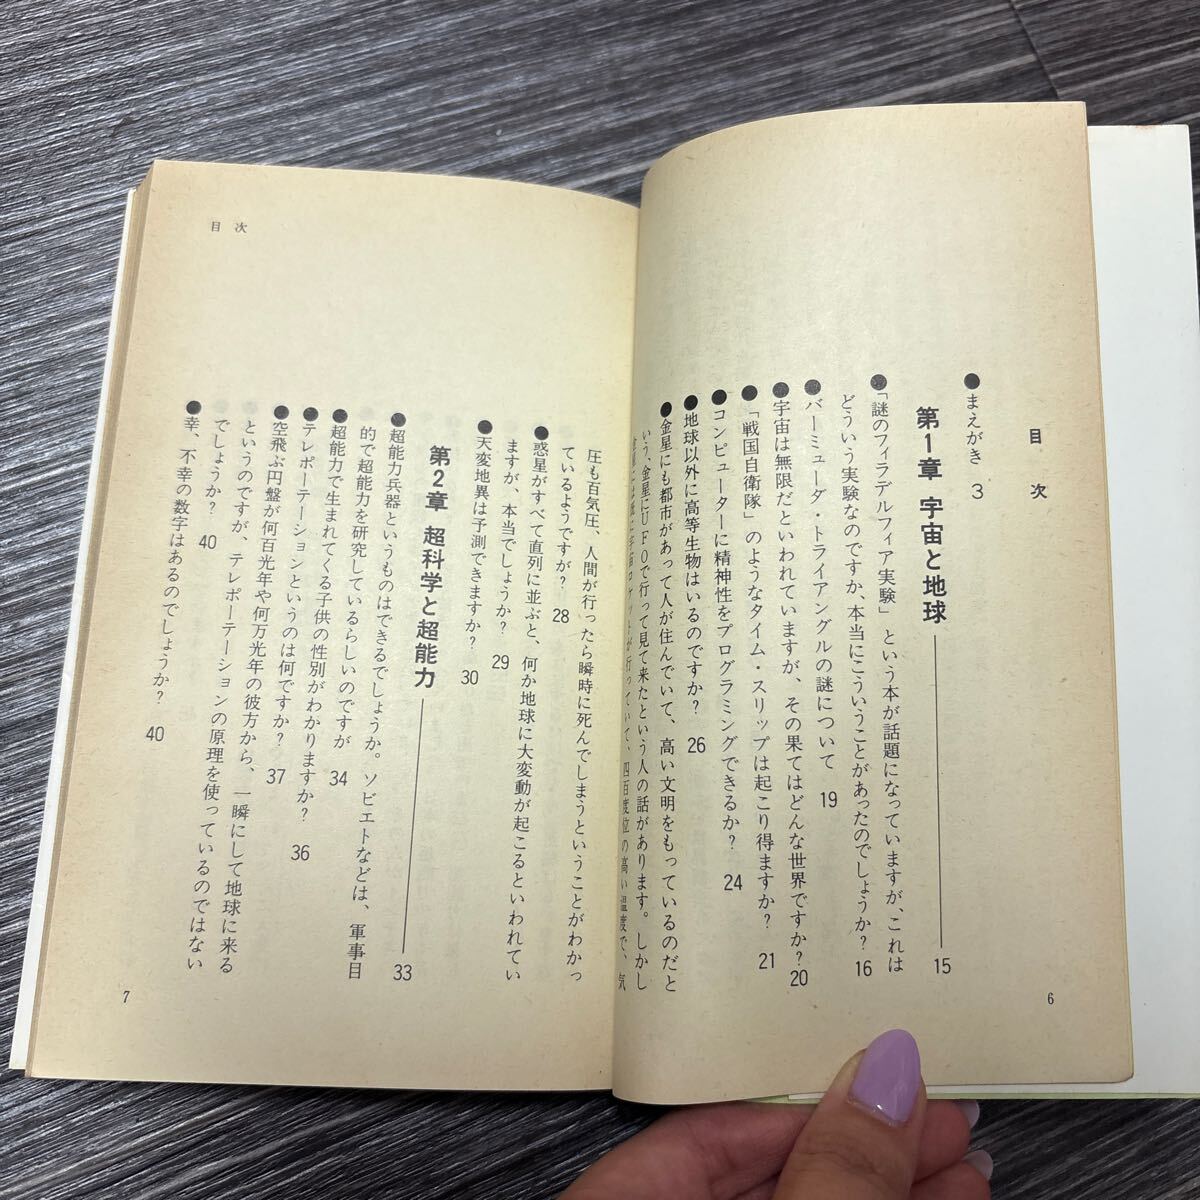 目次
●まえがき 3
第1章 宇宙と地球 15
●「謎のフィラデルフィア実験」という本が話題になっていますが、これは
どういう実験なのですか、本当にこういうことがあったのでしょうか? 16
●バーミューダ・トライアングルの謎について 19
●宇宙は無限だといわれていますが、その果てはどんな世界ですか? 20
●「戦国自衛隊」のようなタイム・スリップは起こり得ますか? 21
●コンピューターに精神性をプログラミングできるか? 24
●地球以外に高等生物はいるのですか? 26
●金星にも都市があって人が住んでいて、高い文明をもっているのだと
いう、金星にUFOで行って見て来たという人の話があります。しかし
宇宙ロケットが行っていて、四百度位の高い温度で、気
6
目次
圧も百気圧、人間が行ったら瞬時に死んでしまうということがわかっ
ているようですが? 28
●惑星がすべて直列に並ぶと、何か地球に大変動が起こるといわれてい
ますが、本当でしょうか? 29
●天変地異は予測できますか? 30
第2章 超科学と超能力 33
●超能力兵器というものはできるでしょうか。ソビエトなどは、軍事目
的で超能力を研究しているらしいのですが 34
●超能力で生まれてくる子供の性別がわかりますか? 36
●テレポーテーションというのは何ですか? 37
●空飛ぶ円盤が何百光年や何万光年の彼方から、一瞬にして地球に来る
というのですが、テレポーテーションの原理を使っているのではない
でしょうか? 40
●幸、不幸の数字はあるのでしょうか? 40
7